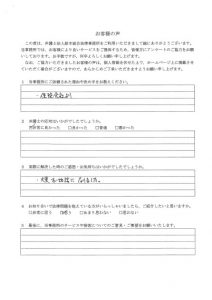 お客様の声
この度は、弁護士法人岐阜総合法律事務所をご利用いただきまして誠にありがとうございます。
当事務所では、お客様により良いサービスをご提供するため、皆様方にアンケートのご協力をお願い
しております。お手数ですが、何卒ご協力いただきますようお願い申し上げます。
なお、ご協力いただきましたお客様の声は、個人情報を伏せた上で、ホームページ上に掲載させ
ていただく場合がございますので、あらかじめご了承いただきますようお願い申し上げます。
1 当事務所にご依頼された理由や決め手をお教えください。
2 弁護士の応対はいかがでしたでしょうか。
□非常に良かった □良かった □普通 □悪かった
3 実際に解決した時のご感想・お気持ちはいかがでしたでしょうか。
4 お知り合いで法律問題を抱えている方がいらっしゃいましたら、ご紹介したいと思いますか。
□非常に思う □思う □あまり思わない □思わない
5 最後に、当事務所のサービスや接客についてのご意見・ご要望をお願いいたします。